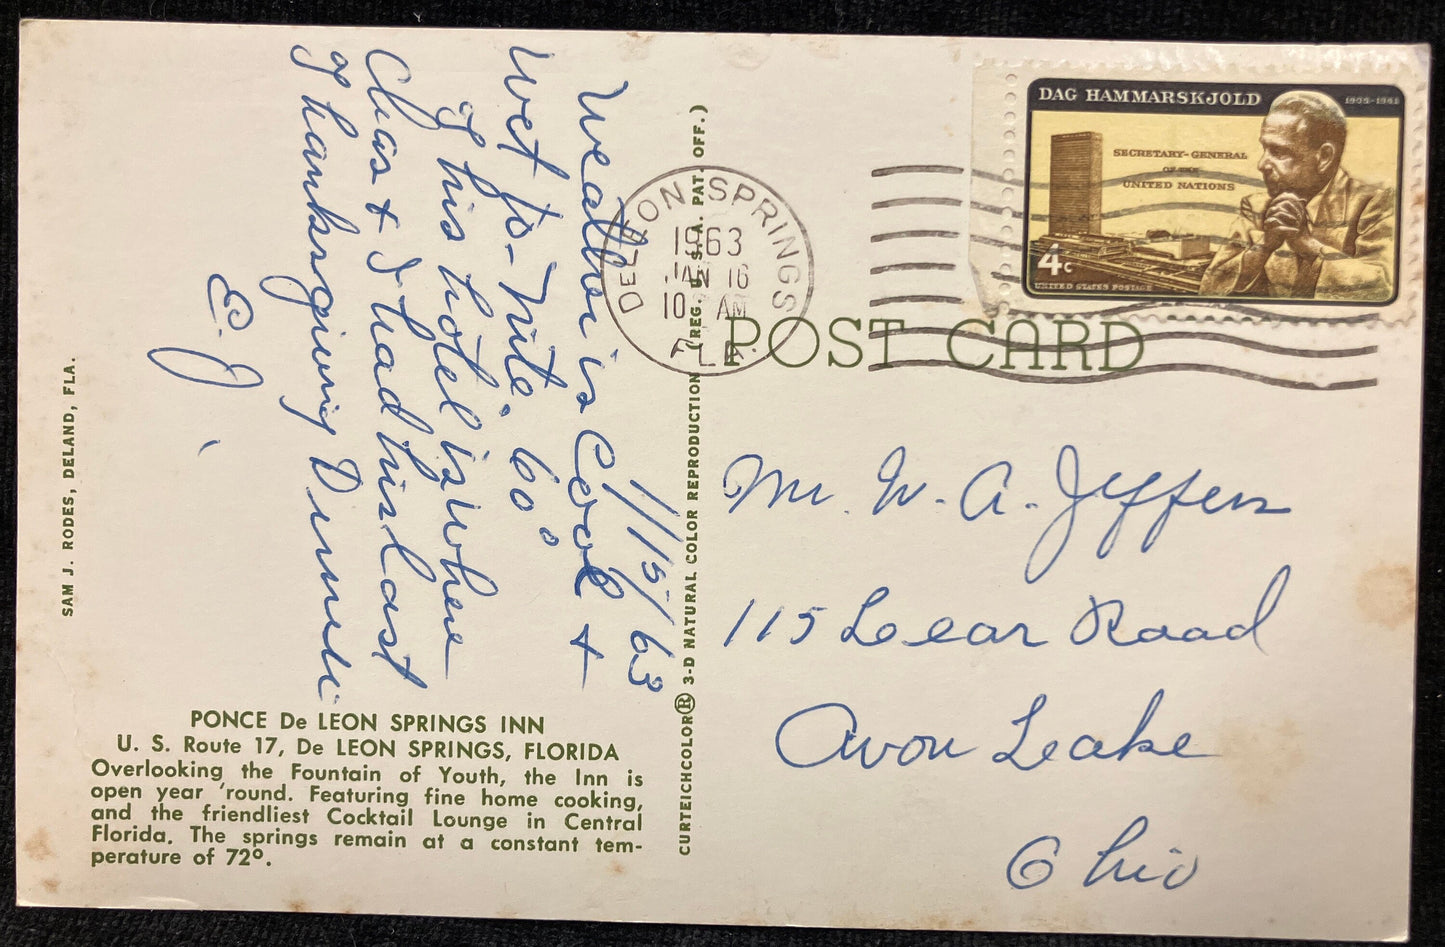 1/15/63
Weather is Cool &
Wet to-nite. 60°
This hotel is where
Chas & I had his last
Thanksgiving Dinner
E. J.
PONCE De LEON SPRINGS INN
U. S. Route 17, De LEON SPRINGS, FLORIDA
Overlooking the Fountain of Youth, the Inn is
open year 'round. Featuring fine home cooking,
and the friendliest Cocktail Lounge in Central
Florida. The springs remain at a constant tem-
perature of 72°.
SAM J. RODES, DELAND, FLA.
CURTEICHCOLOR® 3-D NATURAL COLOR REPRODUCTION (REG. U.S.A. PAT. OFF.)
DELEON SPRINGS
1963
JAN 16
10 AM
FLA.
DAG HAMMARSKJOLD
1905-1961
SECRETARY-GENERAL
OF THE
UNITED NATIONS
4c
UNITED STATES POSTAGE
POST CARD
Mr. W. A. Jeffers
115 Lear Road
Avon Lake
Ohio